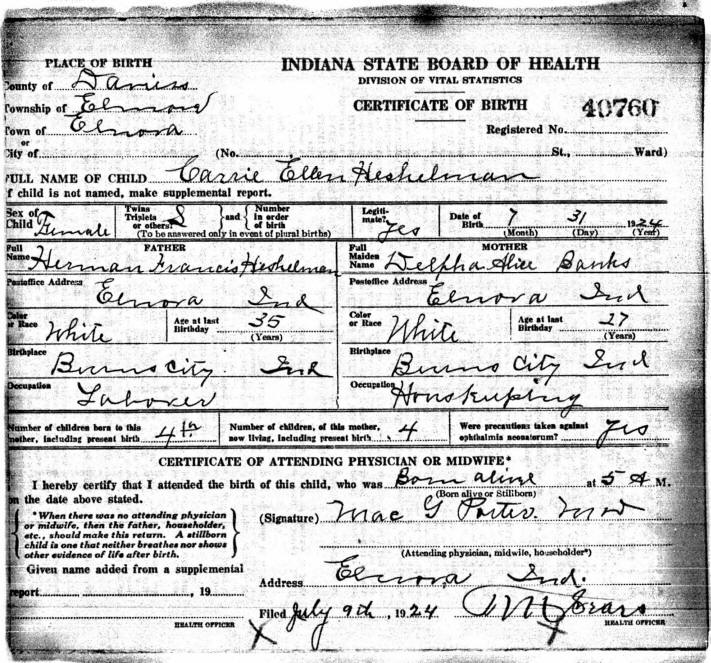 PLACE OF BIRTH
County of Daviess
Township of Elmore
Town of Elnora
or
City of
INDIANA STATE BOARD OF HEALTH
DIVISION OF VITAL STATISTICS
CERTIFICATE OF BIRTH
40760
Registered No.
(No. St., Ward)
FULL NAME OF CHILD Carrie Ellen Heshelman
If child is not named, make supplemental report.
Sex of Child Female
Twins Triplets or others?
and
Number in order of birth
(To be answered only in event of plural births)
Legitimate? Yes
Date of Birth 7 31 1924
(Month) (Day) (Year)
FATHER
Full Name Herman Francis Heshelman
MOTHER
Full Maiden Name Delpha Alice Banks
Postoffice Address Elnora Ind
Postoffice Address Elnora Ind
Color or Race White
Age at last Birthday 35 (Years)
Color or Race White
Age at last Birthday 27 (Years)
Birthplace Burns City Ind
Birthplace Burns City Ind
Occupation Laborer
Occupation Houskuping
Number of children born to this mother, including present birth 4th
Number of children, of this mother, now living, including present birth 4
Were precautions taken against ophthalmia neonatorum? yes
CERTIFICATE OF ATTENDING PHYSICIAN OR MIDWIFE*
I hereby certify that I attended the birth of this child, who was Born alive at 5 A M.
(Born alive or Stillborn)
on the date above stated.
*When there was no attending physician
or midwife, then the father, householder,
etc., should make this return. A stillborn
child is one that neither breathes nor shows
other evidence of life after birth.
(Signature) Mac G Porter
(Attending physician, midwife, householder*)
Given name added from a supplemental
report , 19
HEALTH OFFICER
Address Elnora Ind.
Filed July 9th, 1924
HEALTH OFFICER